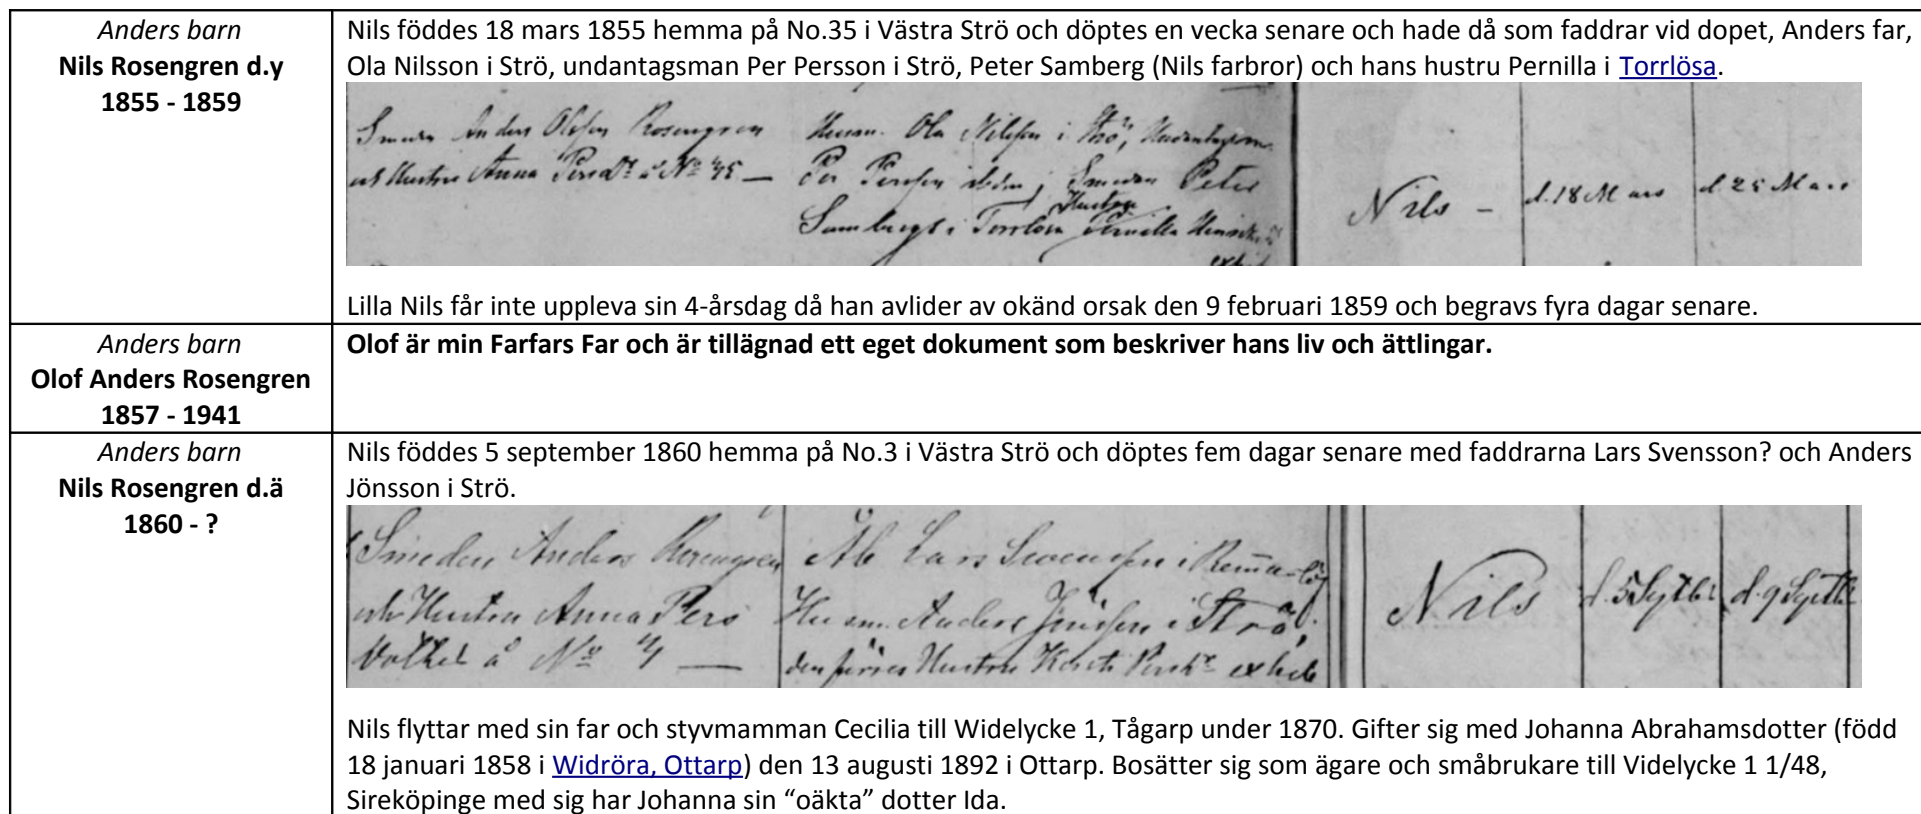 Anders barn
Nils Rosengren d.y
1855 - 1859
Nils föddes 18 mars 1855 hemma på No.35 i Västra Strö och döptes en vecka senare och hade då som faddrar vid dopet, Anders far,
Ola Nilsson i Strö, undantagsman Per Persson i Strö, Peter Samberg (Nils farbror) och hans hustru Pernilla i Torrlösa.
Smeden Anders Olofsen Rosengren
och Hustru Anna
Husm. Ola Nilsson i Strö,
Per Persson Smeden Peter
i Torrlösa Hustru Pernilla
Nils - d. 18 Mars d 25 Mars
Lilla Nils får inte uppleva sin 4-årsdag då han avlider av okänd orsak den 9 februari 1859 och begravs fyra dagar senare.
Anders barn
Olof Anders Rosengren
1857 - 1941
Olof är min Farfars Far och är tillägnad ett eget dokument som beskriver hans liv och ättlingar.
Anders barn
Nils Rosengren d.ä
1860 - ?
Nils föddes 5 september 1860 hemma på No.3 i Västra Strö och döptes fem dagar senare med faddrarna Lars Svensson? och Anders
Jönsson i Strö.
Smeden Anders Rosengren
och Hustru Anna Pers
å No
Åb Lars Svensson i
Husm. Anders Jönsson i Strö,
Hustru
Nils d. 5 d. 9
Nils flyttar med sin far och styvmamman Cecilia till Widelycke 1, Tågarp under 1870. Gifter sig med Johanna Abrahamsdotter (född
18 januari 1858 i Widröra, Ottarp) den 13 augusti 1892 i Ottarp. Bosätter sig som ägare och småbrukare till Videlycke 1 1/48,
Sireköpinge med sig har Johanna sin “oäkta” dotter Ida.